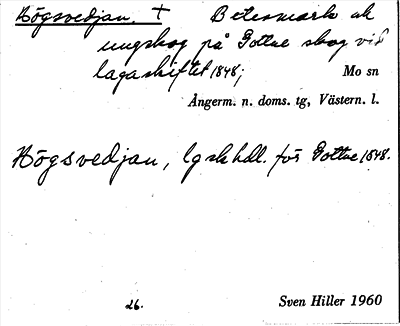 Högsvedjan. † Betesmark ok
ungskog på Gottne skog vid
lagaskiftet 1848;
Mo sn
Ångerm. n. doms. tg, Västern. l.
Högsvedjan, lgskhdl. för Gottne 1848.
26.
Sven Hiller 1960